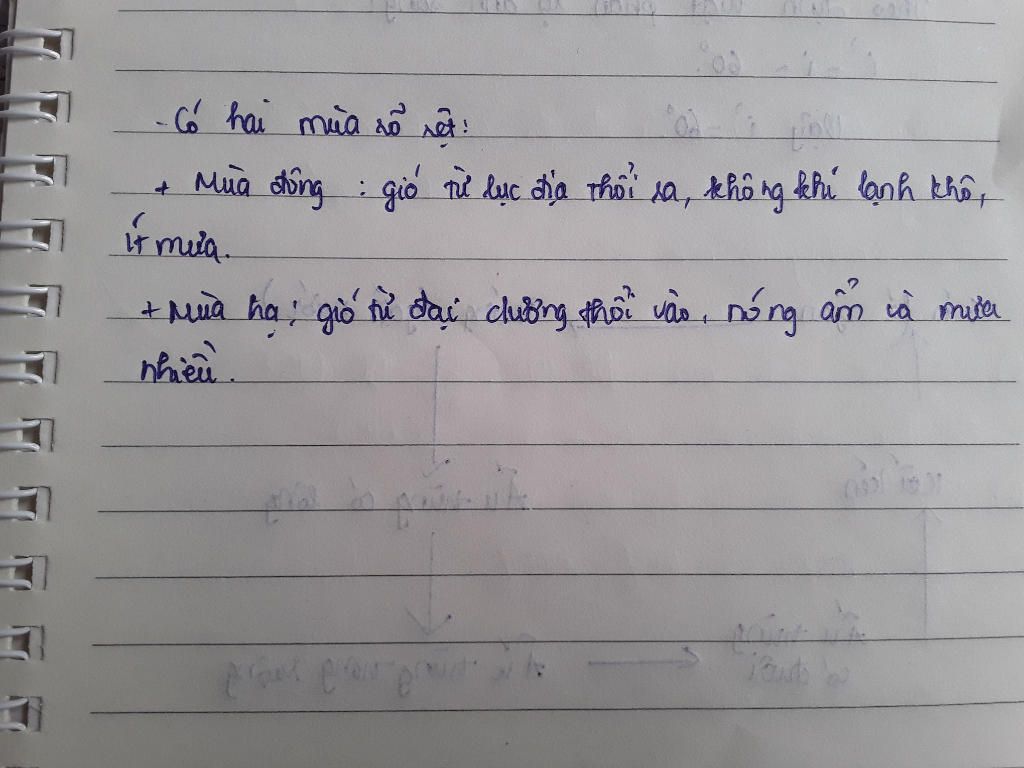 - Có hai mùa rõ rệt:
+ Mùa đông : gió từ lục địa thổi ra, không khí lạnh khô,
ít mưa.
+ Mùa hạ: gió từ đại dương thổi vào, nóng ẩm và mưa
nhiều.